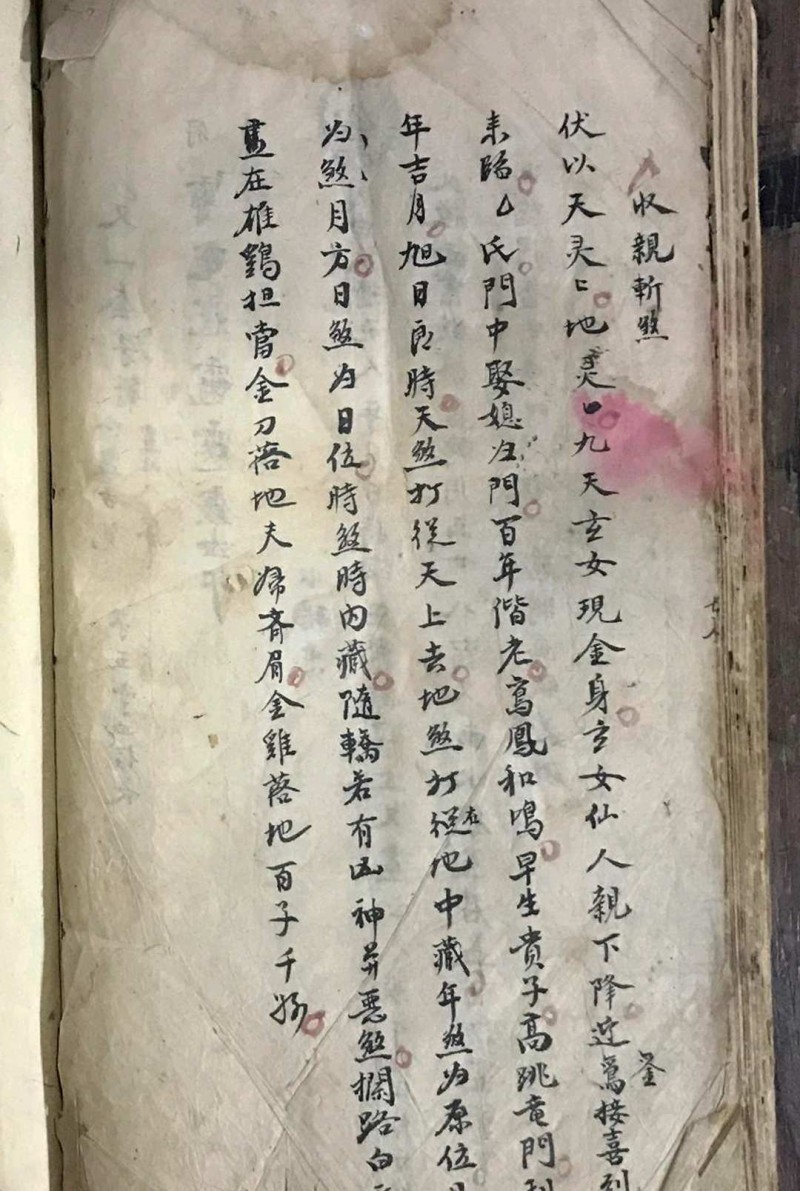 收親斬煞
伏以天灵〻地灵〻九天玄女現金身玄女仙人親下降迎鸞接喜到
来臨厶氏門中娶媳归門百年偕老鸾鳳和鳴早生貴子高跳竜門
年吉月旭日良時天煞打從天上去地煞打從在地中藏年煞为原位
为煞月方日煞为日位時煞時內藏隨轎若有凶神并惡煞攔路白
盡在雄鷄担當金刀落地夫婦齊眉金雞落地百子千孫